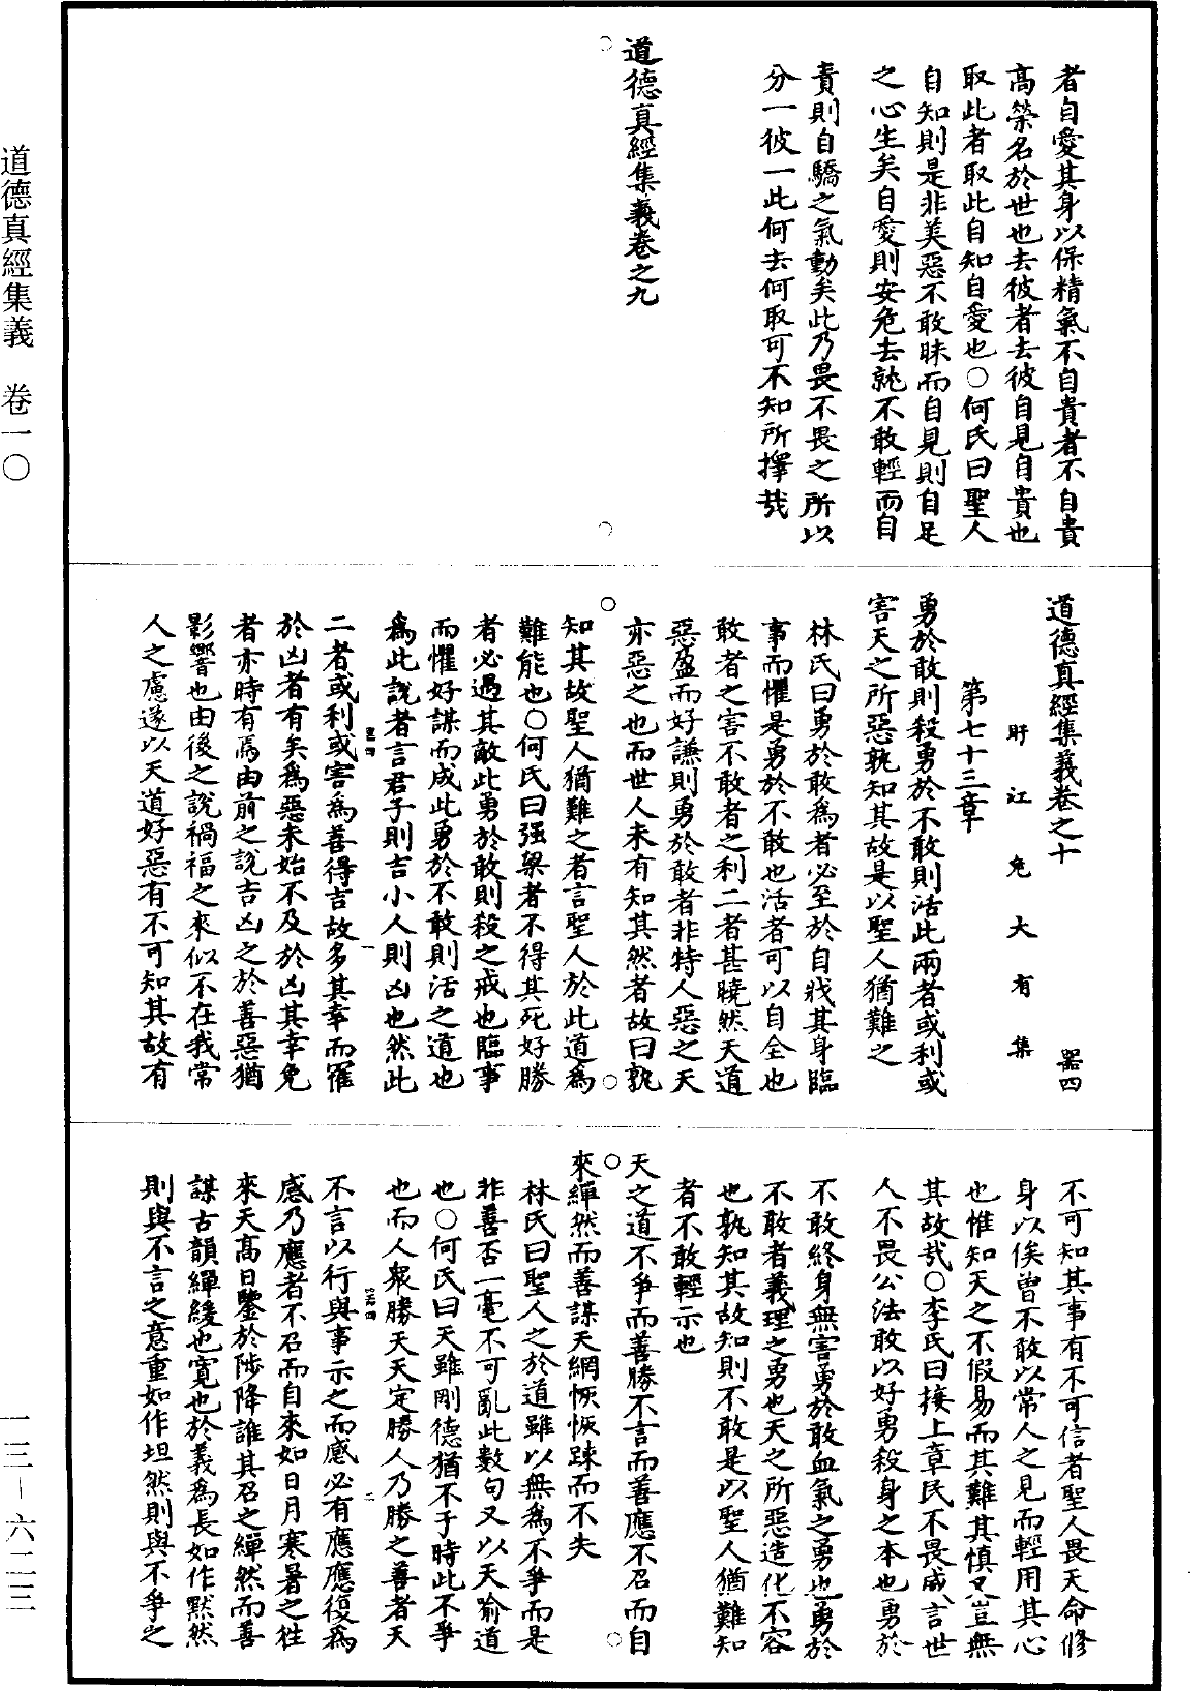 者自愛其身以保精氣不自貴者不自貴
高榮名於世也去彼者去彼自見自貴也
取此者取此自知自愛也○何氏曰聖人
自知則是非美惡不敢昧而自見則自足
之心生矣自愛則安危去就不敢輕而自
貴則自驕之氣動矣此乃畏不畏之所以
分一彼一此何去何取可不知所擇哉
道德真經集義卷之九
道德真經集義卷之十 器四
盱江危大有集
第七十三章
勇於敢則殺勇於不敢則活此兩者或利或
害天之所惡孰知其故是以聖人猶難之
林氏曰勇於敢為者必至於自戕其身臨
事而懼是勇於不敢也活者可以自全也
敢者之害不敢者之利二者甚曉然天道
惡盈而好謙則勇於敢者非特人惡之天
亦惡之也而世人未有知其然者故曰孰
知其故聖人猶難之者言聖人於此道為
難能也○何氏曰强梁者不得其死好勝
者必遇其敵此勇於敢則殺之戒也臨事
而懼好謀而成此勇於不敢則活之道也
為此說者言君子則吉小人則凶也然此
器四 一
二者或利或害為善得吉故多其幸而罹
於凶者有矣為惡未始不及於凶其幸免
者亦時有焉由前之說吉凶之於善惡猶
影響也由後之說禍福之來似不在我常
人之慮遂以天道好惡有不可知其故有
不可知其事有不可信者聖人畏天命修
身以俟曾不敢以常人之見而輕用其心
也惟知天之不假易而其難其慎又豈無
其故哉○李氏曰接上章民不畏威言世
人不畏公法敢以好勇殺身之本也勇於
不敢終身無害勇於敢血氣之勇也勇於
不敢者義理之勇也天之所惡造化不容
也孰知其故知則不敢是以聖人猶難知
者不敢輕示也
天之道不爭而善勝不言而善應不召而自
來繟然而善謀天網恢恢踈而不失
林氏曰聖人之於道雖以無為不爭而是
非善否一毫不可亂此數句又以天喻道
也○何氏曰天雖剛德猶不于時此不爭
也而人衆勝天天定勝人乃勝之善者天
器四 二
不言以行與事示之而感必有應應復為
感乃應者不召而自來如日月寒暑之往
來天高日鑒於陟降誰其召之繟然而善
謀古韻繟緩也寬也於義為長如作默然
則與不言之意重如作坦然則與不爭之
道德真經集義 卷一〇
一三-六二三